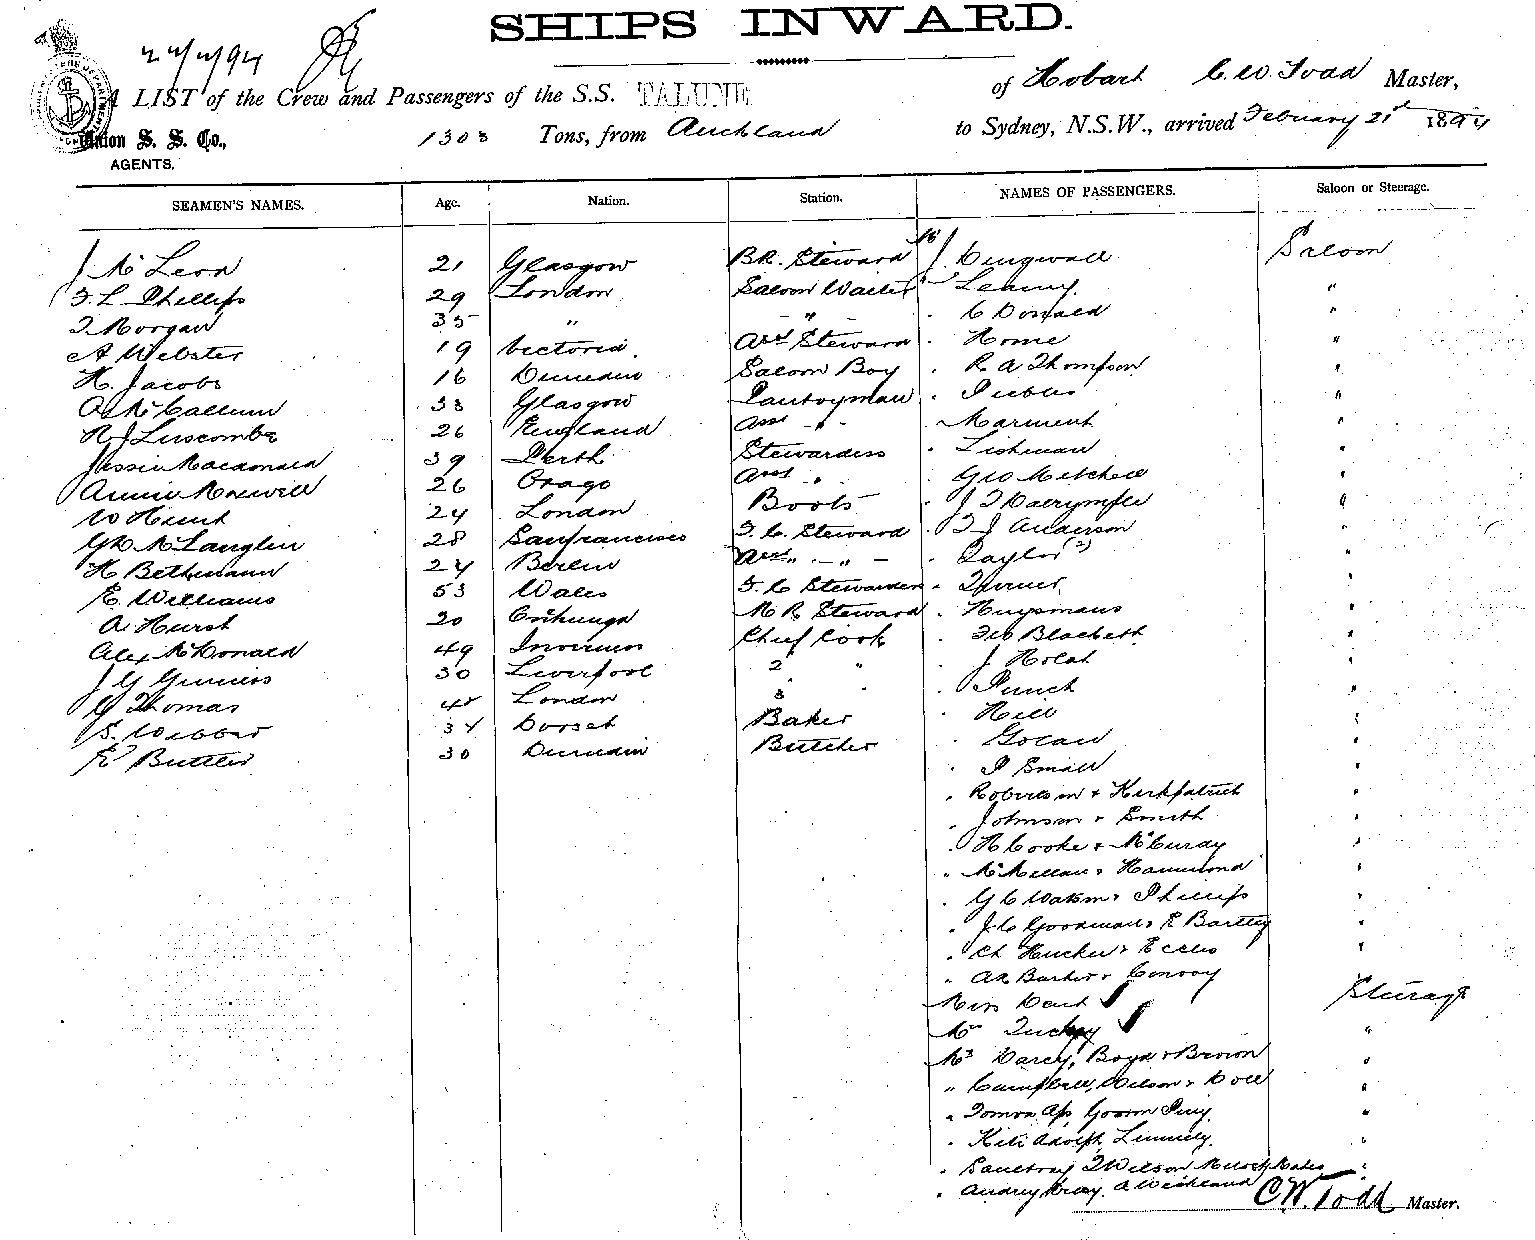 SHIPS INWARD.
A LIST of the Crew and Passengers of the S.S. TALUNE of Hobart C. W. Todd Master,
Union S. S. Co., AGENTS. 1303 Tons, from Auckland to Sydney, N.S.W., arrived February 21st 1894
SEAMEN'S NAMES. Age. Nation. Station. NAMES OF PASSENGERS. Saloon or Steerage.
J McLeod 21 Glasgow B.R. Steward Mr J. Dingwall Saloon
F L Phillips 29 London Saloon Waiter " Leamy "
T Morgan 35 " " " C Donald "
A Webster 19 Victoria Asst Steward " Home "
H. Jacobs 16 Dunedin Saloon Boy " R A Thompson "
A McCallum 33 Glasgow Pantryman " Peebles "
R J Luscombe 26 England Asst " " Marment "
Jessie Macdonald 39 Perth Stewardess " Lishman "
Annie 26 Otago Asst " " Geo Mitchell "
W Hunt 24 London Boots " J T Dalrymple "
McLauglin 28 Sanfrancisco F.C. Steward " T J Anderson "
H Bethmann 24 Berlin Asst " " " Taylor (2) "
E. Williams 53 Wales F. C Stewardess " Turner "
A Hurst 20 Onehunga M R Steward " Huysmans "
Alex McDonald 49 Inverness Chief Cook " Blackett "
J G 30 Liverpool 2 " " J "
G Thomas London 3 " " Punch "
S. Webber 34 Dorset Baker " Hill "
E Buttler 30 Dunedin Butcher " "
" P Small "
" Robertson + Kirkpatrick "
" Johnson + Smith "
" H Cooke + McCurdy "
" McMillan + Hammond "
" G C + Phillips "
" J. C Goodman + E Bartley "
" + Eccles "
" Barber + Conroy
Miss Steerage
Mr "
Mrs Darcy, Boyd + Brown "
" Campbell, Wilson + "
" "
" Adolph "
" T Wilson "
" Audrey
C W. Todd Master.